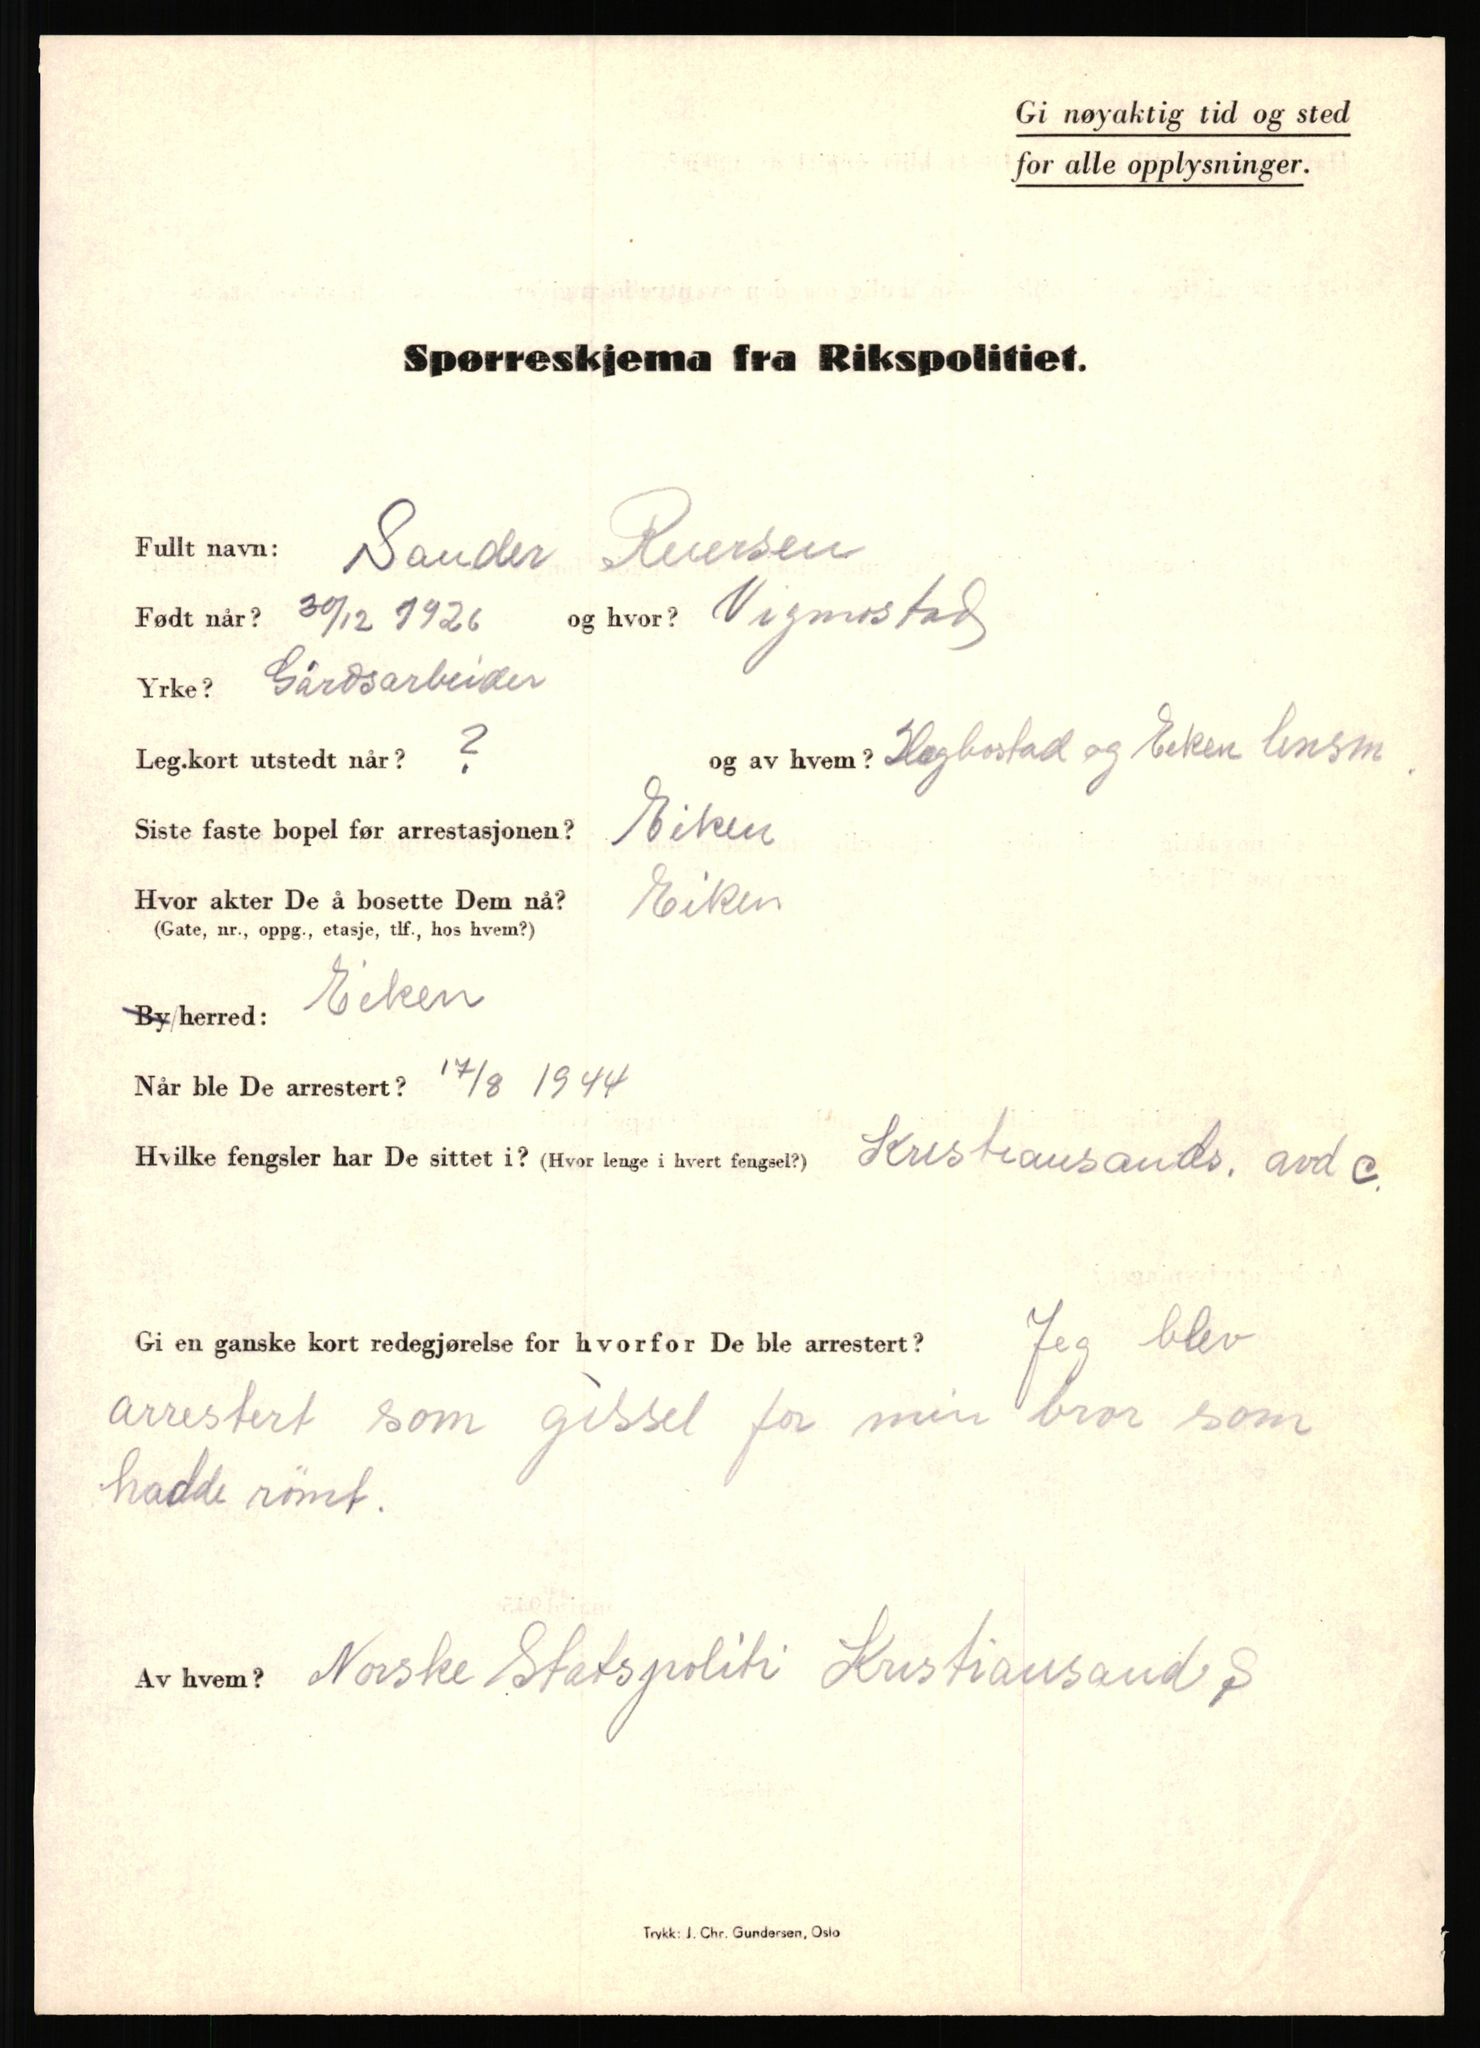 Gi nøyaktig tid og sted
for alle opplysninger.
Spørreskjema fra Rikspolitiet.
Fullt navn: Sander Reiersen
Født når? 30/12 1926 og hvor? Vigmostad
Yrke? Gårdsarbeider
Leg.kort utstedt når? ? og av hvem? Hægbostad og Eiken lensm.
Siste faste bopel før arrestasjonen? Eiken
Hvor akter De å bosette Dem nå? Eiken
(Gate, nr., oppg., etasje, tlf., hos hvem?)
By/herred: Eiken
Når ble De arrestert? 17/8 1944
Hvilke fengsler har De sittet i? (Hvor lenge i hvert fengsel?) Kristiansands. avd c.
Gi en ganske kort redegjørelse for hvorfor De ble arrestert? Jeg blev
arrestert som gissel for min bror som
hadde römt.
Av hvem? Norske Statspoliti Kristiansand S
Trykk: J. Chr. Gundersen, Oslo